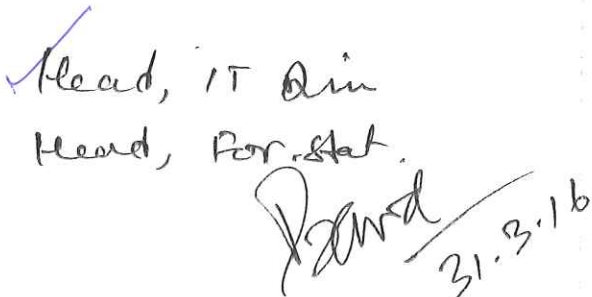 Head, IT Din
Head, For. Stat.
31.3.16